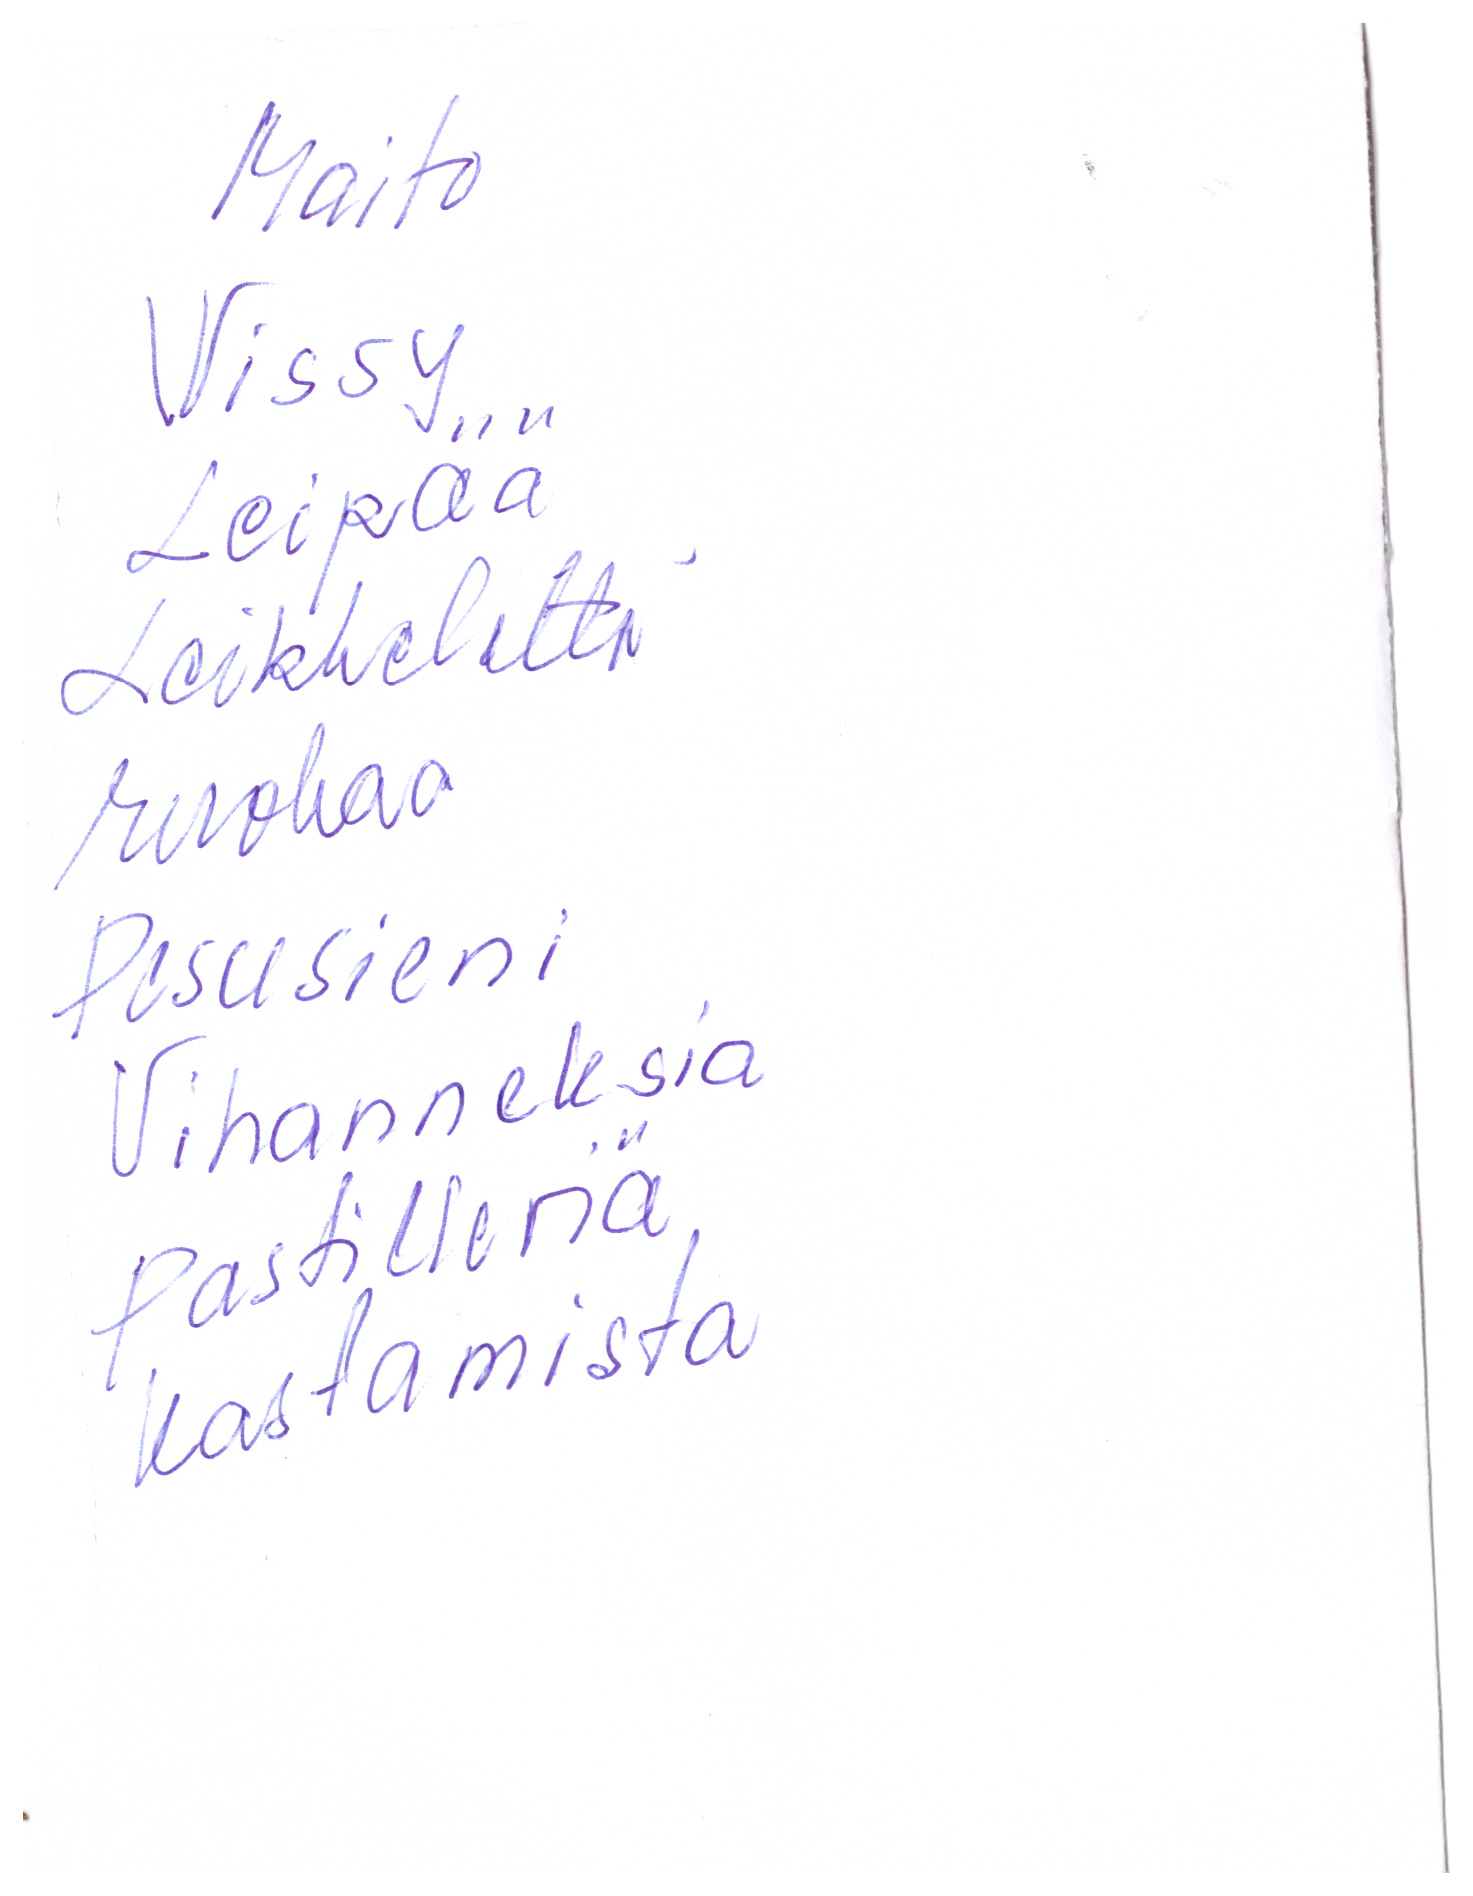 Maito
Vissy
Leipää
Leikkelettä
ruohaa
Pesusieni
Vihanneksia
pastillenä
kastamista